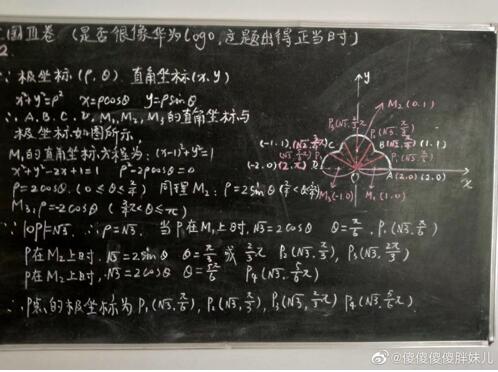 全国Ⅲ卷 (是否很像华为logo,这题出得正当时)
2
∵ 极坐标(ρ,θ) 直角坐标(x,y)
x²+y²=ρ² x=ρcosθ y=ρsinθ
∴ A、B、C、D、M₁、M₂、M₃的直角坐标与
极坐标如图所示
M₁的直角坐标方程为:(x-1)²+y²=1
x²+y²-2x+1=1 ρ²-2ρcosθ=0
ρ=2cosθ (0≤θ≤π/4) 同理M₂:ρ=2sinθ
M₃:ρ=-2cosθ (3/4π≤θ≤π)
∵ |OP|=√3 ∴ρ=√3. 当P在M₁上时,√3=2cosθ θ=π/6. P₁(√3,π/6)
P在M₂上时,√3=2sinθ θ=π/3或2/3π P₂(√3,π/3), P₃(√3,2π/3)
P在M₂上时,√3=2cosθ θ=5/6π P₄(√3,5/6π)
∴ P点的极坐标为P₁(√3,π/6), P₂(√3,π/3), P₃(√3,2/3π) P₄(√3,5/6π)
y
M₂(0,1)
(-1,1)
C
B
(1,1)
(-2,0)
A(2,0)(2,0)
x
M₃(-1,0)
M₁(1,0)
@傻傻傻傻胖妹儿